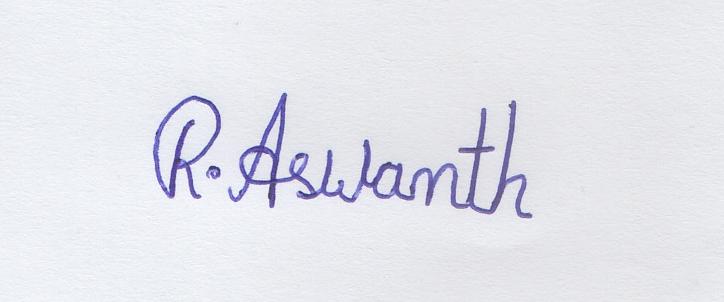 R. Aswanth